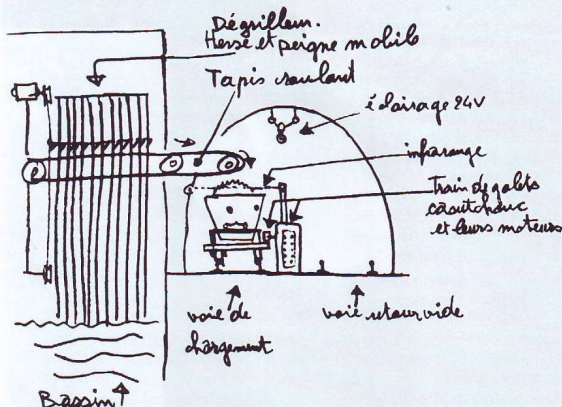 Dégrilleur.
Herse et peigne mobile
Tapis roulant
éclairage 24V
infrarouge
Train de galets
caoutchouc
et leurs moteurs
voie de
chargement
voie retour vide
Bassin